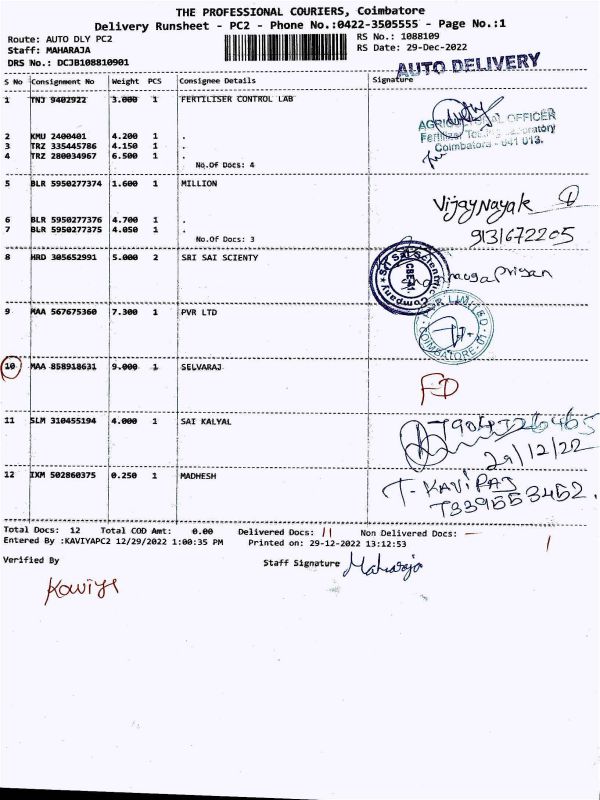 THE PROFESSIONAL COURIERS, Coimbatore
Delivery Runsheet - PC2 - Phone No.:0422-3505555 - Page No.:1
Route: AUTO DLY PC2 RS No.: 1088109
Staff: MAHARAJA RS Date: 29-Dec-2022
DRS No.: DCJB108810901
AUTO DELIVERY
S No Consignment No Weight PCS Consignee Details Signature
1 TNJ 9402922 3.000 1 FERTILISER CONTROL LAB
AGRICULTURAL OFFICER
2 KMU 2400401 4.200 1 .
Fertilizer Testing Laboratory
3 TRZ 335445786 4.150 1 .
Coimbatore - 641 013.
4 TRZ 280034967 6.500 1 .
No.Of Docs: 4
5 BLR 5950277374 1.600 1 MILLION
Vijay Nayak
6 BLR 5950277376 4.700 1 .
7 BLR 5950277375 4.050 1 .
9131672205
No.Of Docs: 3
8 HRD 305652991 5.000 2 SRI SAI SCIENTY
Sri Sai Scientific Company
CBE
Priyan
9 MAA 567675360 7.300 1 PVR LTD
PVR LIMITED
COIMBATORE
10 MAA 858918631 9.000 1 SELVARAJ
FD
11 SLM 310455194 4.000 1 SAI KALYAL
29/12/22
12 IXM 502860375 0.250 1 MADHESH
T. KAVIRAJ
Total Docs: 12 Total COD Amt: 0.00 Delivered Docs: 11 Non Delivered Docs: 1
Entered By :KAVIYAPC2 12/29/2022 1:00:35 PM Printed on: 29-12-2022 13:12:53
Verified By Staff Signature Maharaja
Kaviya